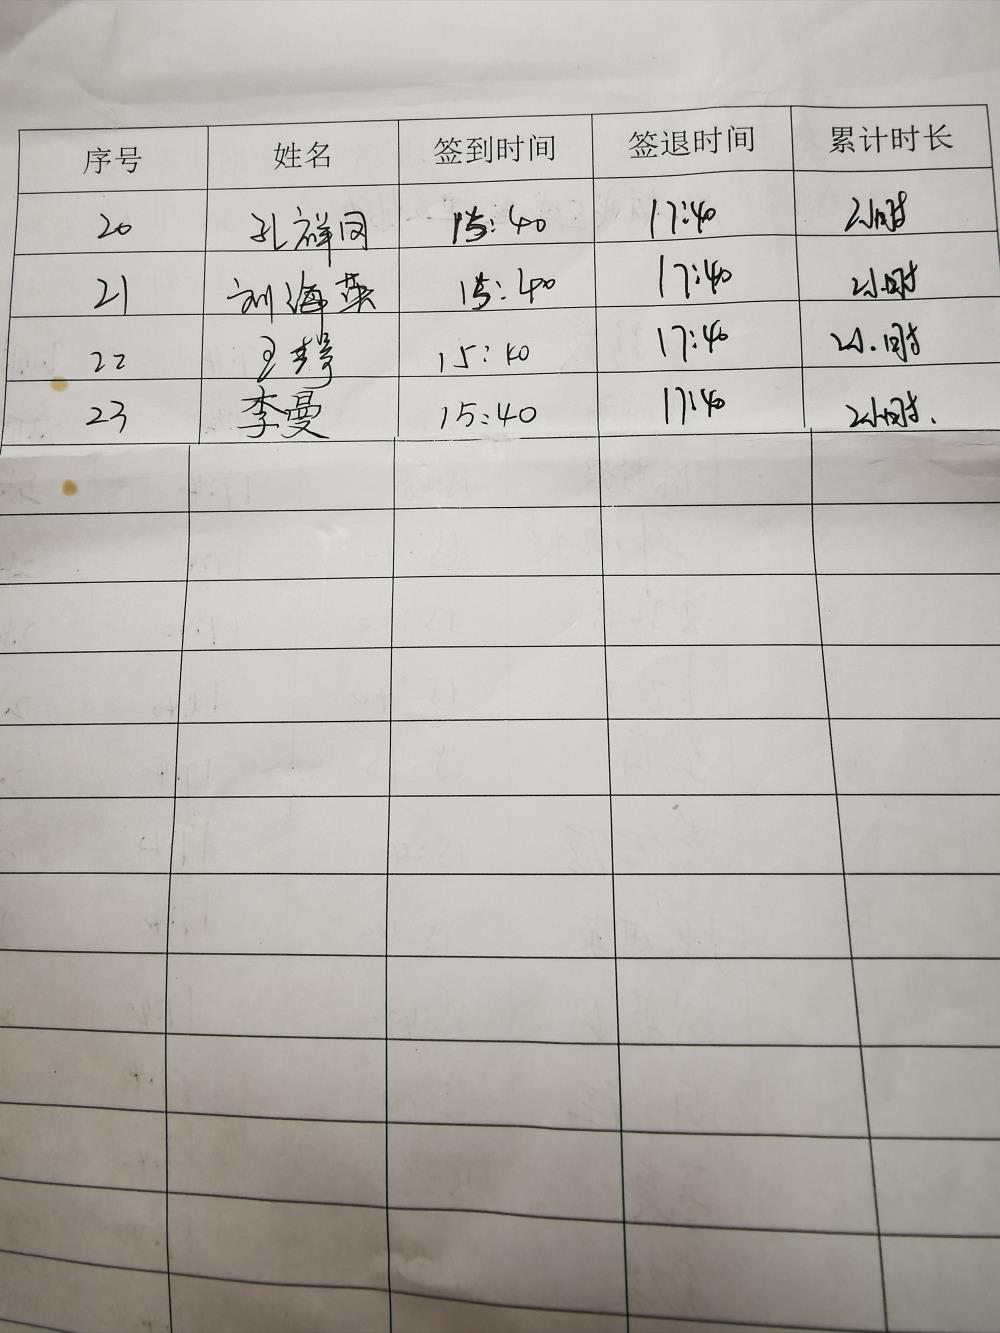 序号 姓名 签到时间 签退时间 累计时长
20 孔祥同 15:40 17:40 2小时
21 刘海英 15:40 17:40 2小时
22 王 15:40 17:40 2小时
23 李曼 15:40 17:40 2小时.